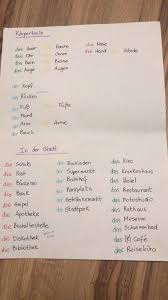 Körperteile
das Haar Haare das Nase
das Ohr Ohren die Hand Hände
das Bein Beine
das Auge Augen
der Kopf
der Rücken
der Fuß Füße
der Mund
der Arm Arme
der Bauch
In der Stadt
die Schule der Kiosk das Kino
die Post der Supermarkt das Krankenhaus
die Bäckerei der Bahnhof das Hotel
die Bank der Parkplatz das Restaurant
die Ampel der das Fotostudio
die Apotheke der Stadtpark das Rathaus
die Bushaltestelle das Museum
das Schwimmbad
die Diskothek das Café
die Bibliothek das Reisebüro